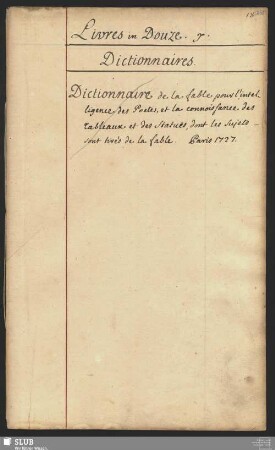 Livres in Douze. 7.
Dictionnaires
Dictionnaire de la fable, pour l'intel-
ligence des Poetes, et la connoissance des
tableaux et des Statues, dont les Sujets
sont tirés de la fable. Paris 1727.
SLUB
Wir führen Wissen.